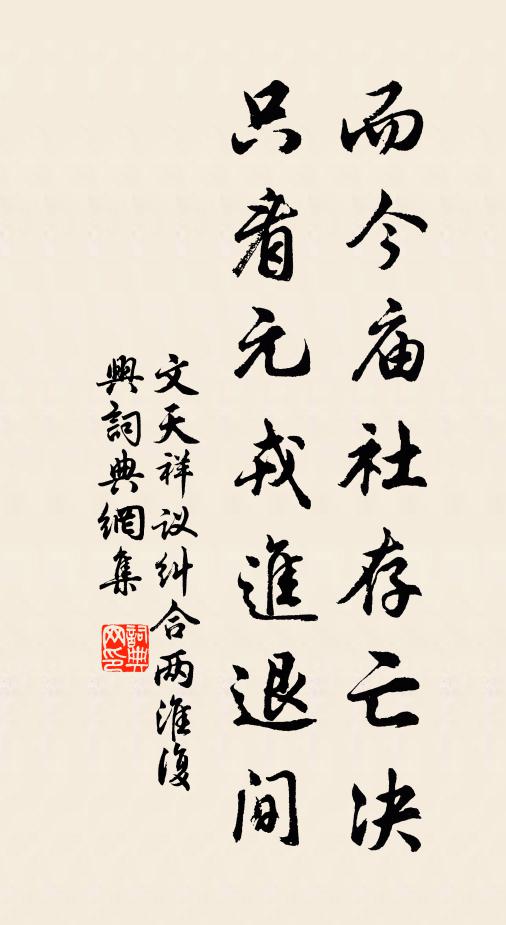 而今庙社存亡决
只看元戎進退间
文天祥议纠合两淮復
興詞典網集
詞典网印